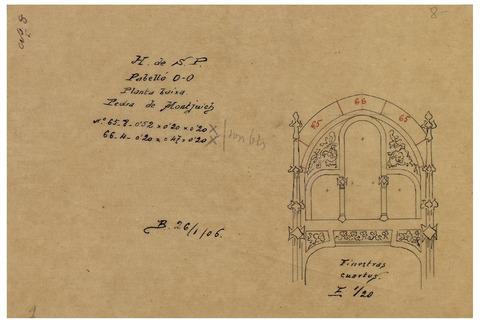 8-
H. de S. P.
Pabelló O-O
Planta baixa.
Pedra de Montjuich
nº 65-8-0'52 x 0'20 x 0'20
66-4-0'20 x 0'47 x 0'20
B. 26/1/06.
65
66
65
Finestras
cuartos.
E 1/20
1